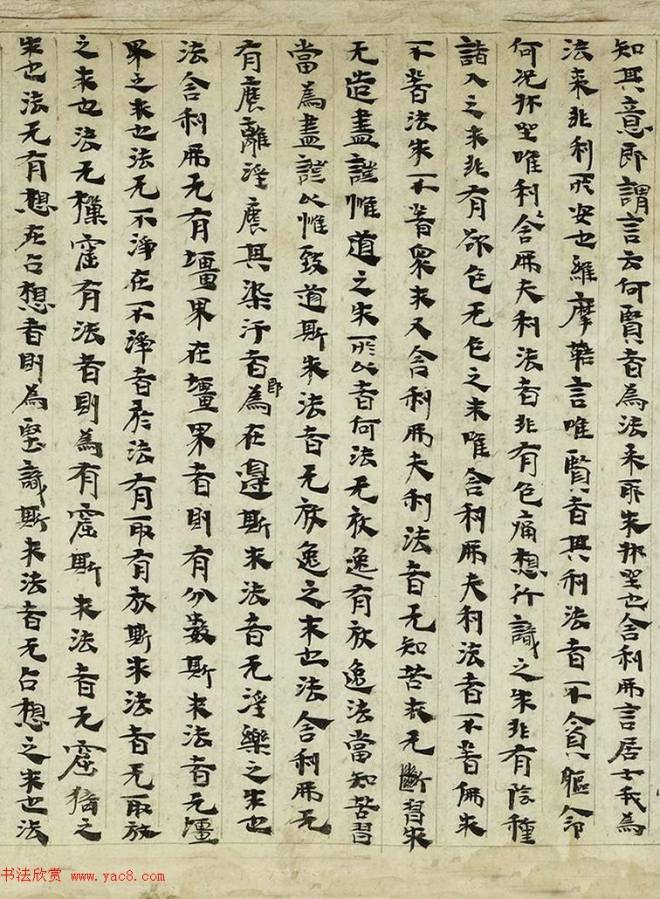 知其意即謂言云何賢者為法來耶求牀坐也舍利弗言居士我為
法來非利所安也維摩詰言唯賢者其利法者不貪軀命
何況牀坐唯利舍弗夫利法者非有色痛想行識之求非有陰種
諸入之求非有欲色无色之求唯舍利弗夫利法者不著佛求
不著法求不著衆求又舍利弗夫利法者无知苦求无斷習求
无造盡證惟道之求所以者何法无放逸有放逸法當知苦習
當為盡證以惟致道斯求法者无放逸之求也法舍利弗无
有塵離淫塵其染汙者即為在邊斯求法者无淫樂之求也
法舍利弗无有壃界在壃界者則有分數斯求法者无壃
界之求也法无不淨在不淨者於法有取有放斯求法者无取放
之求也法无樔窟有法者則為有窟斯求法者无窟猗之
求也法无有想在占想者則為堅識斯求法者无占想之求也法
书法欣赏 www.yac8.com